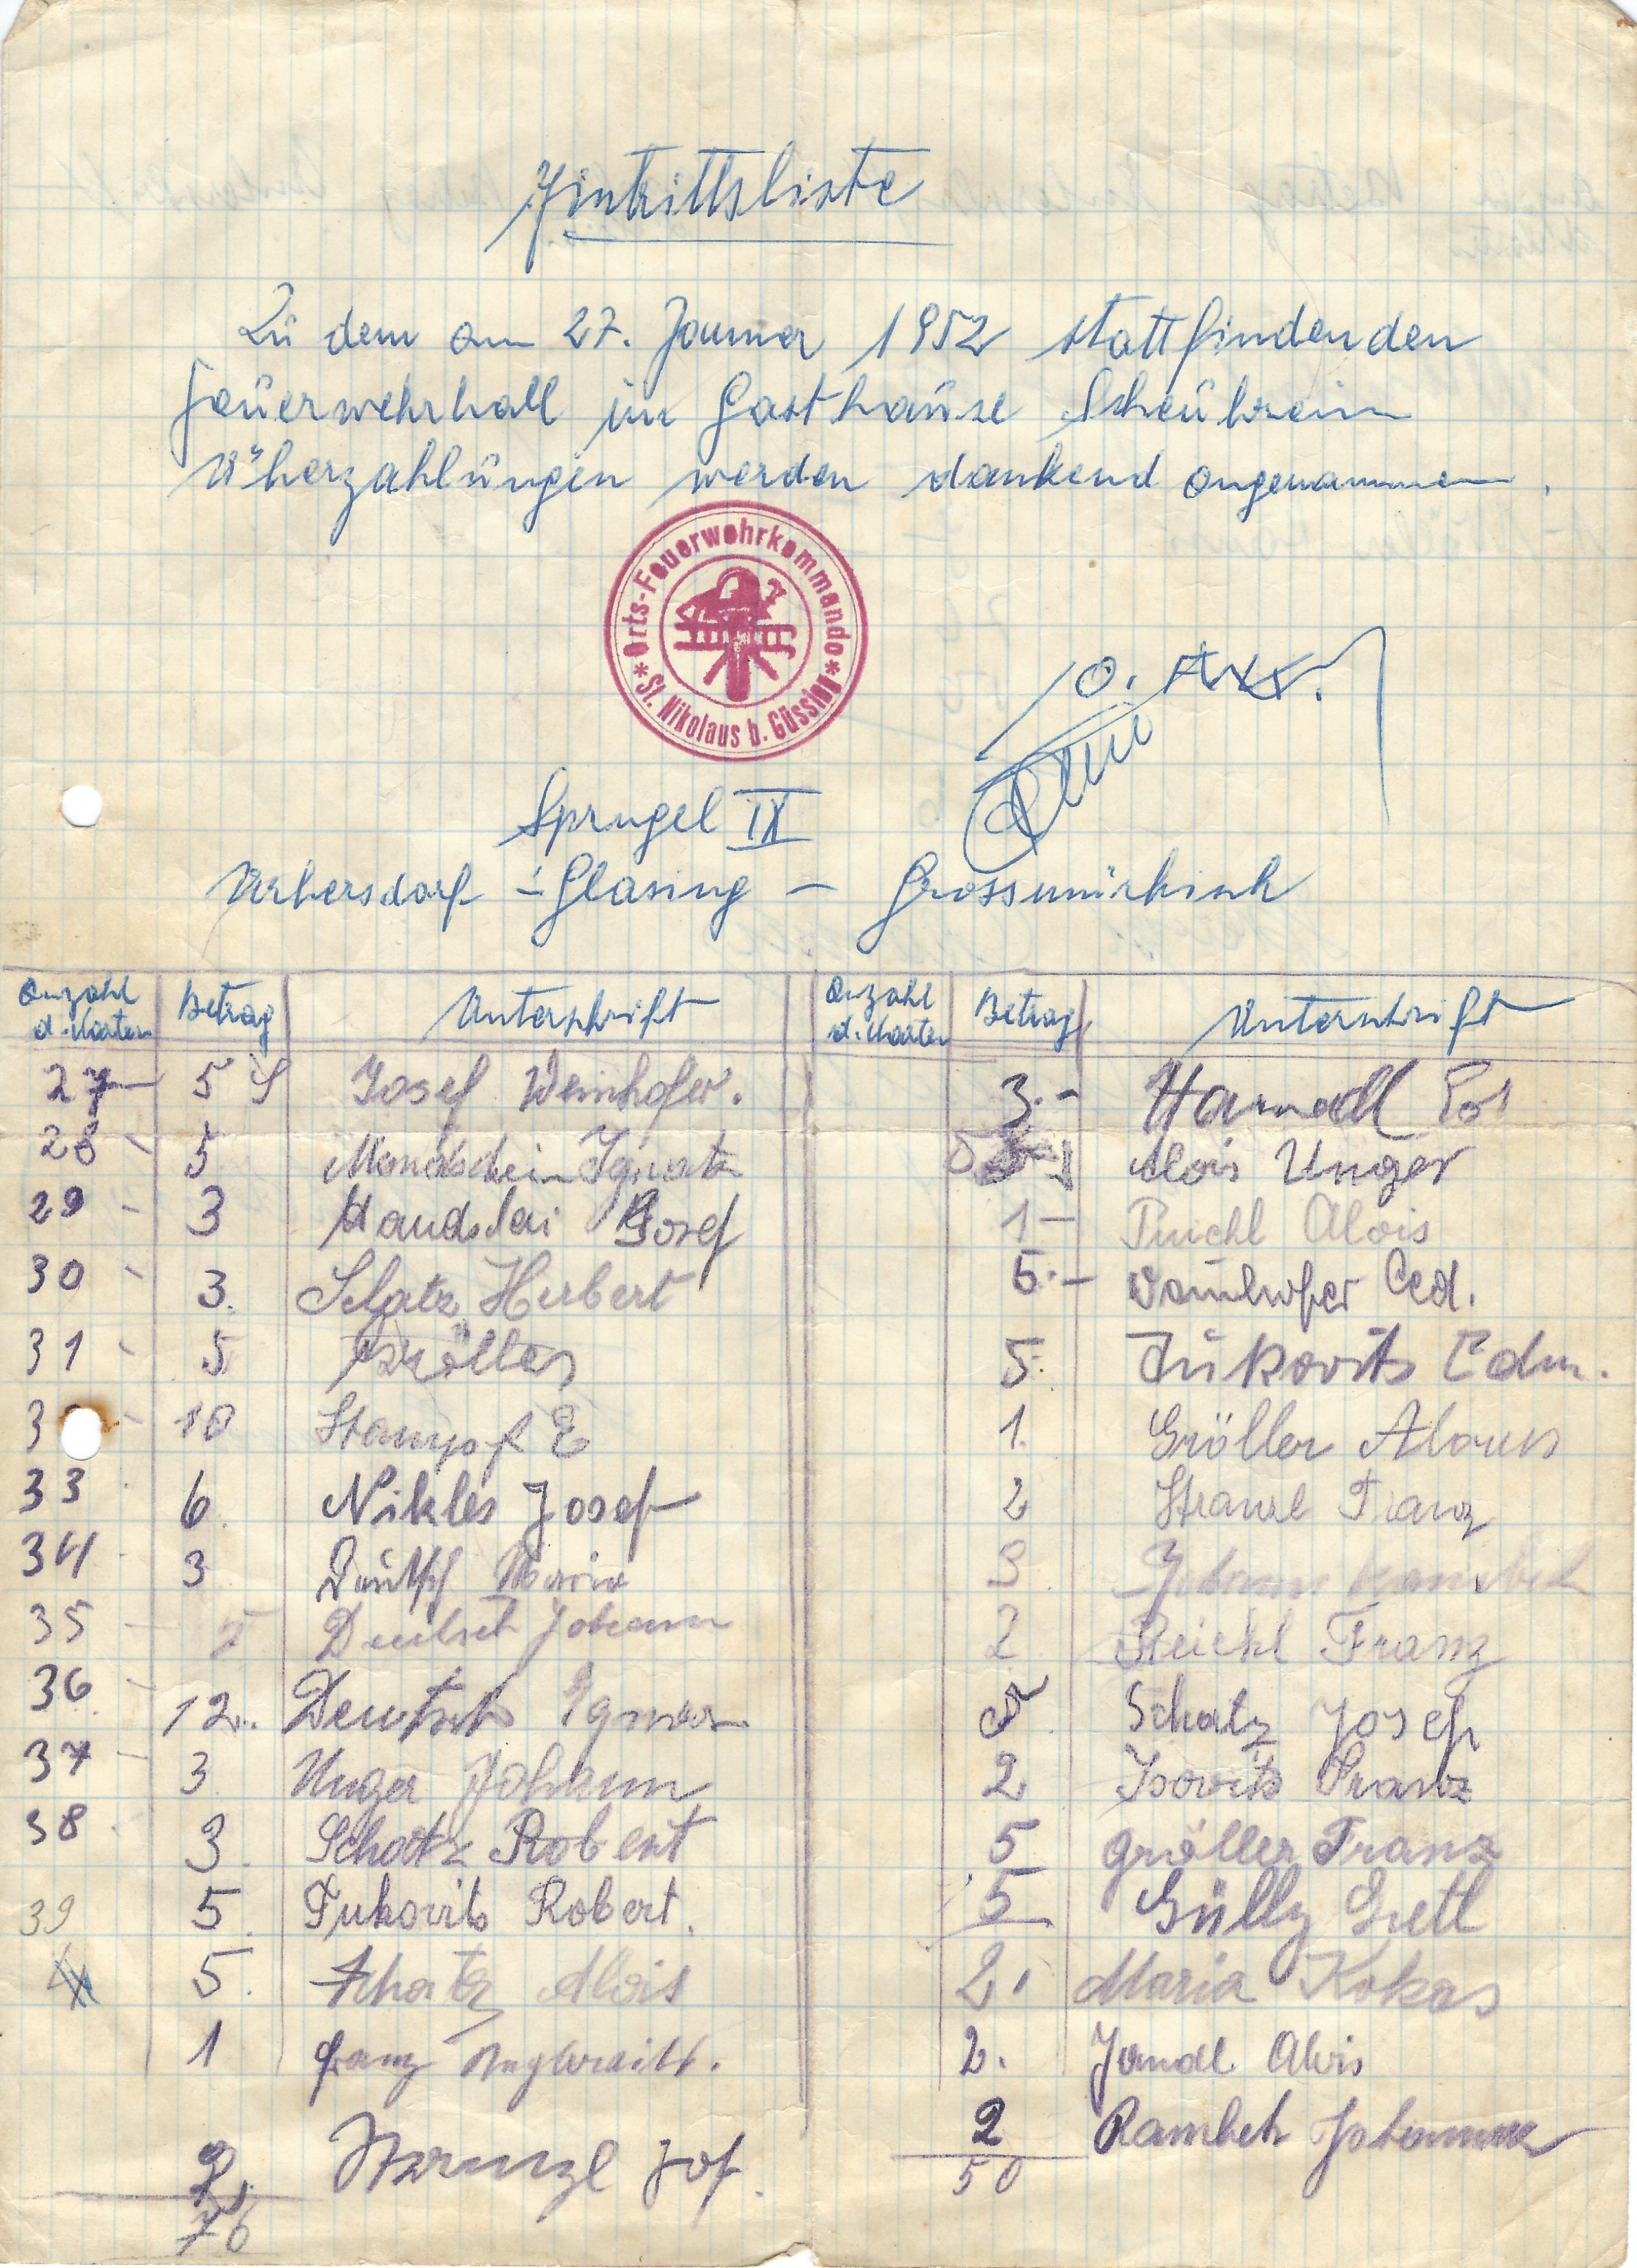 Eintrittsliste
Zu dem am 27. Jänner 1952 stattfindenden
Feuerwehrball im Gasthause Scheubrein
Überzahlungen werden dankend angenommen.
Orts-Feuerwehrkommando
* St. Nikolaus b. Güssing *
Sprugel IX
Urbersdorf - Glasing - Grossmürbisch
Anzahl d. Karten Betrag Unterschrift Anzahl d. Karten Betrag Unterschrift
27 5 S Josef Weinhofer.
28 5 Mondschein Ignatz
29 3 Josef
30 3. Herbert
31 5 Gröller
10 Stampf E
33 6. Nikles Josef
34 3 Deutsch Maria
35 Deutsch Johann
36 12. Deutsch
37 3 Unger Johann
38 3. Schatz Robert
39 5. Jukovits Robert.
5. Schatz Alois
1 Franz
2. Stranzl Jos.
76
3.-
Alois Unger
1- Alois
5.-
5. Jukovits Edm.
1. Gröller Alouis
2 Stranzl Franz
3 Johann
2 Reichl Franz
Schatz Josef
2 Isovits Franz
5 Gröller Franz
5 Gülly Gretl
2. Maria Kokas
2. Jandl Alois
2 Rambeh Johann
50